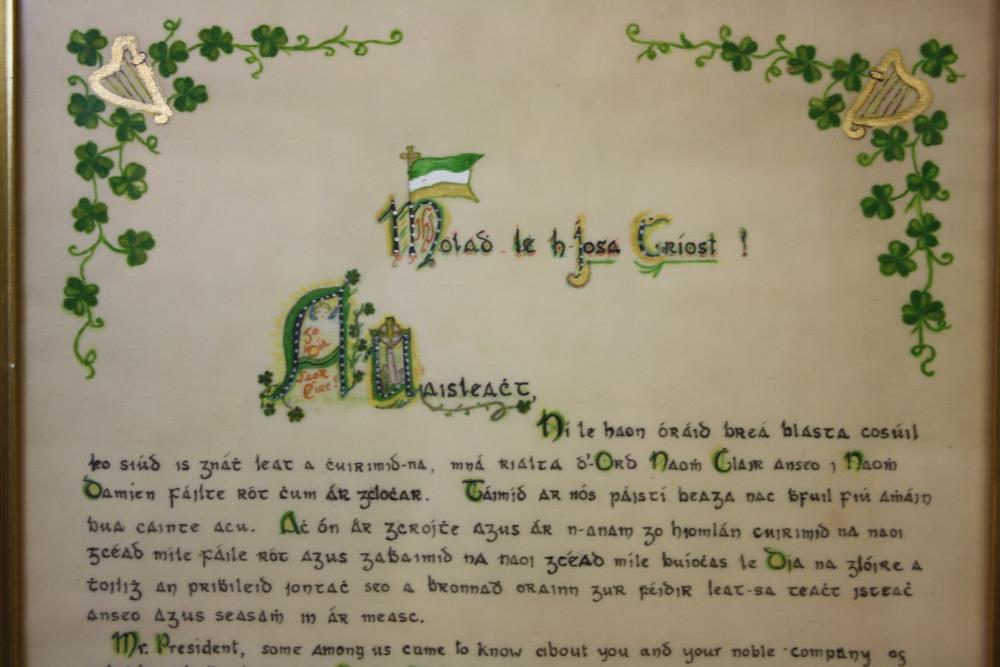 Molaḋ le h-Íosa Críost !
Go
Dia
Saor
Éire!
A Uaisleaċt,
Ní le haon óráid breá blasta cosúil
leo siúd is gnáṫ leat a ċuirimid-na, mná rialta d'-Ord Naoṁ Clair anseo i Naoṁ
Damien fáilte róṫ ċum ár gcloċar. Táimíd ar nós páistí beaga nac ḃfuil fiú aṁáin
bua cainte acu. Aċ ón ár gcroiḋte agus ár n-anam go hiomlán cuirimíd na naoi
gcéad míle fáile róṫ agus gaḃaimíd na naoi gcéad míle buíoċas le Dia na glóire a
ṫoiliġ an pribiléid iontaċ seo a bronnaḋ orainn gur féidir leat-sa teaċt isteaċ
anseo agus seasaṁ in ár measc.
Mr. President, some among us came to know about you and your noble company as